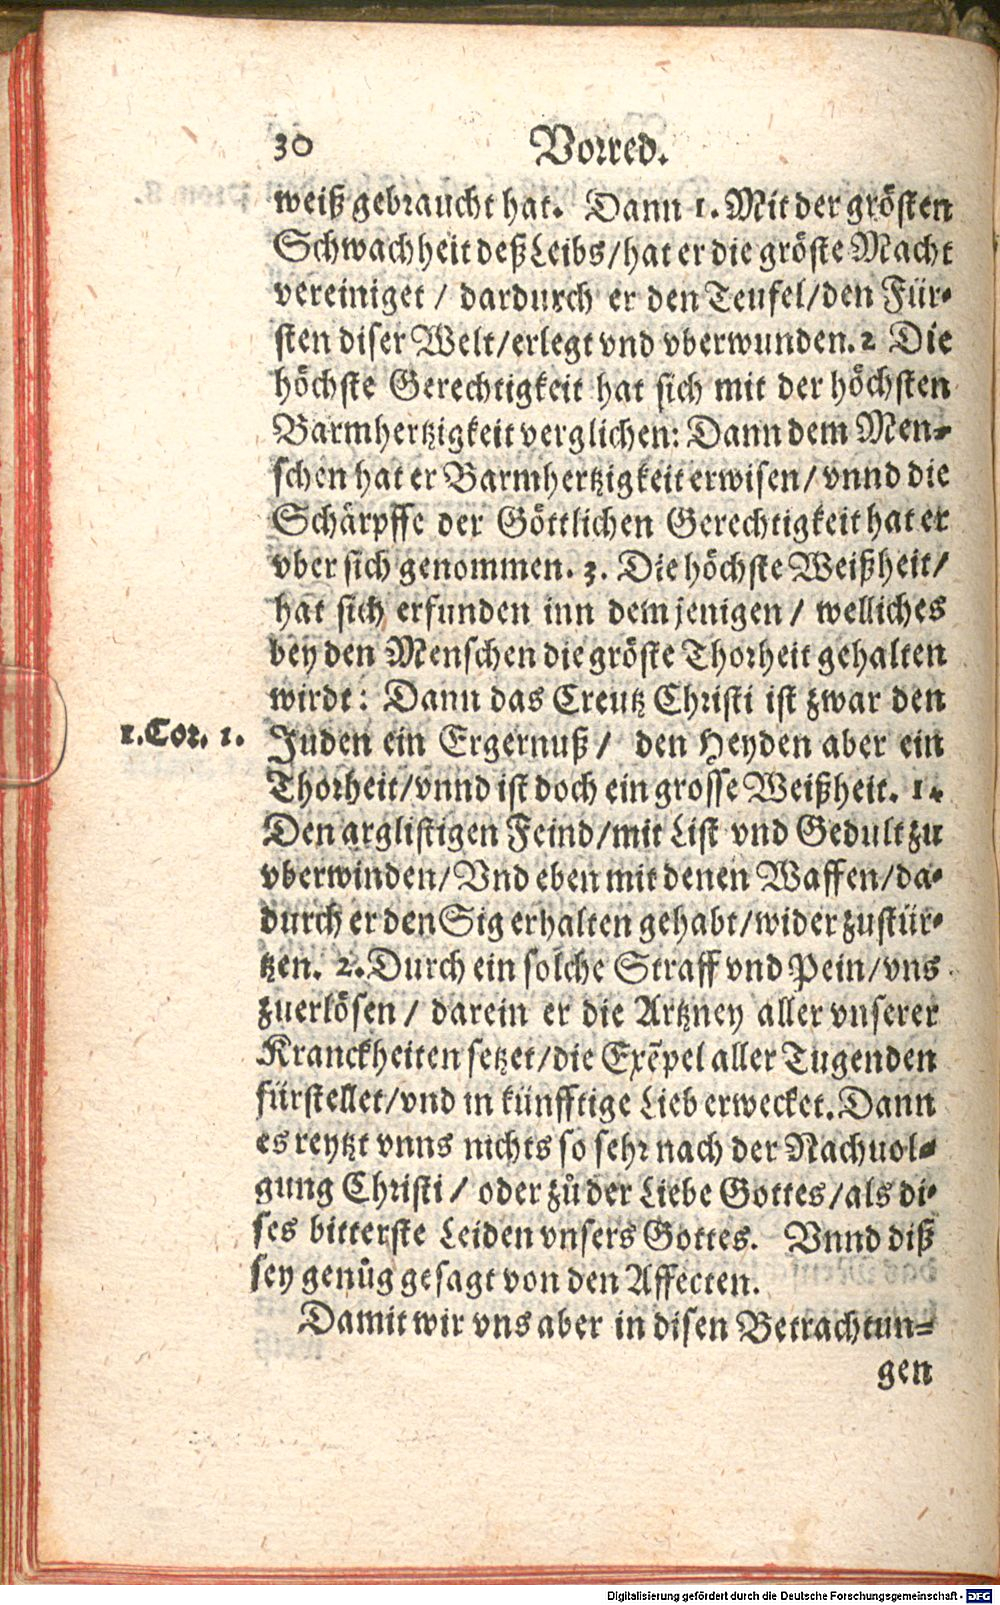 30 Vorred.
weiß gebraucht hat. Dann 1. Mit der grösten
Schwachheit deß Leibs/hat er die gröste Macht
vereiniget / dardurch er den Teufel/den Für-
sten diser Welt/erlegt vnd vberwunden. 2 Die
höchste Gerechtigkeit hat sich mit der höchsten
Barmhertzigkeit verglichen: Dann dem Men-
schen hat er Barmhertzigkeit erwisen/ vnnd die
Schärpffe der Göttlichen Gerechtigkeit hat er
vber sich genommen. 3. Die höchste Weißheit/
hat sich erfunden inn dem jenigen / welliches
bey den Menschen die gröste Thorheit gehalten
wirdt: Dann das Creutz Christi ist zwar den
1. Cor. 1. Juden ein Ergernuß / den Heyden aber ein
Thorheit/vnnd ist doch ein grosse Weißheit. 1.
Den arglistigen Feind/mit List vnd Gedult zu
vberwinden/ Vnd eben mit denen Waffen/da-
durch er den Sig erhalten gehabt/wider zustür-
tzen. 2. Durch ein solche Straff vnd Pein/vns
zuerlösen / darein er die Artzney aller vnserer
Kranckheiten setzet/die Exẽpel aller Tugenden
fürstellet/vnd in künfftige Lieb erwecket. Dann
es reytzt vnns nichts so sehr nach der Nachuol-
gung Christi / oder zů der Liebe Gottes/als di-
ses bitterste Leiden vnsers Gottes. Vnnd diß
sey genůg gesagt von den Affecten.
Damit wir vns aber in disen Betrachtun-
gen
Digitalisierung gefördert durch die Deutsche Forschungsgemeinschaft - DFG